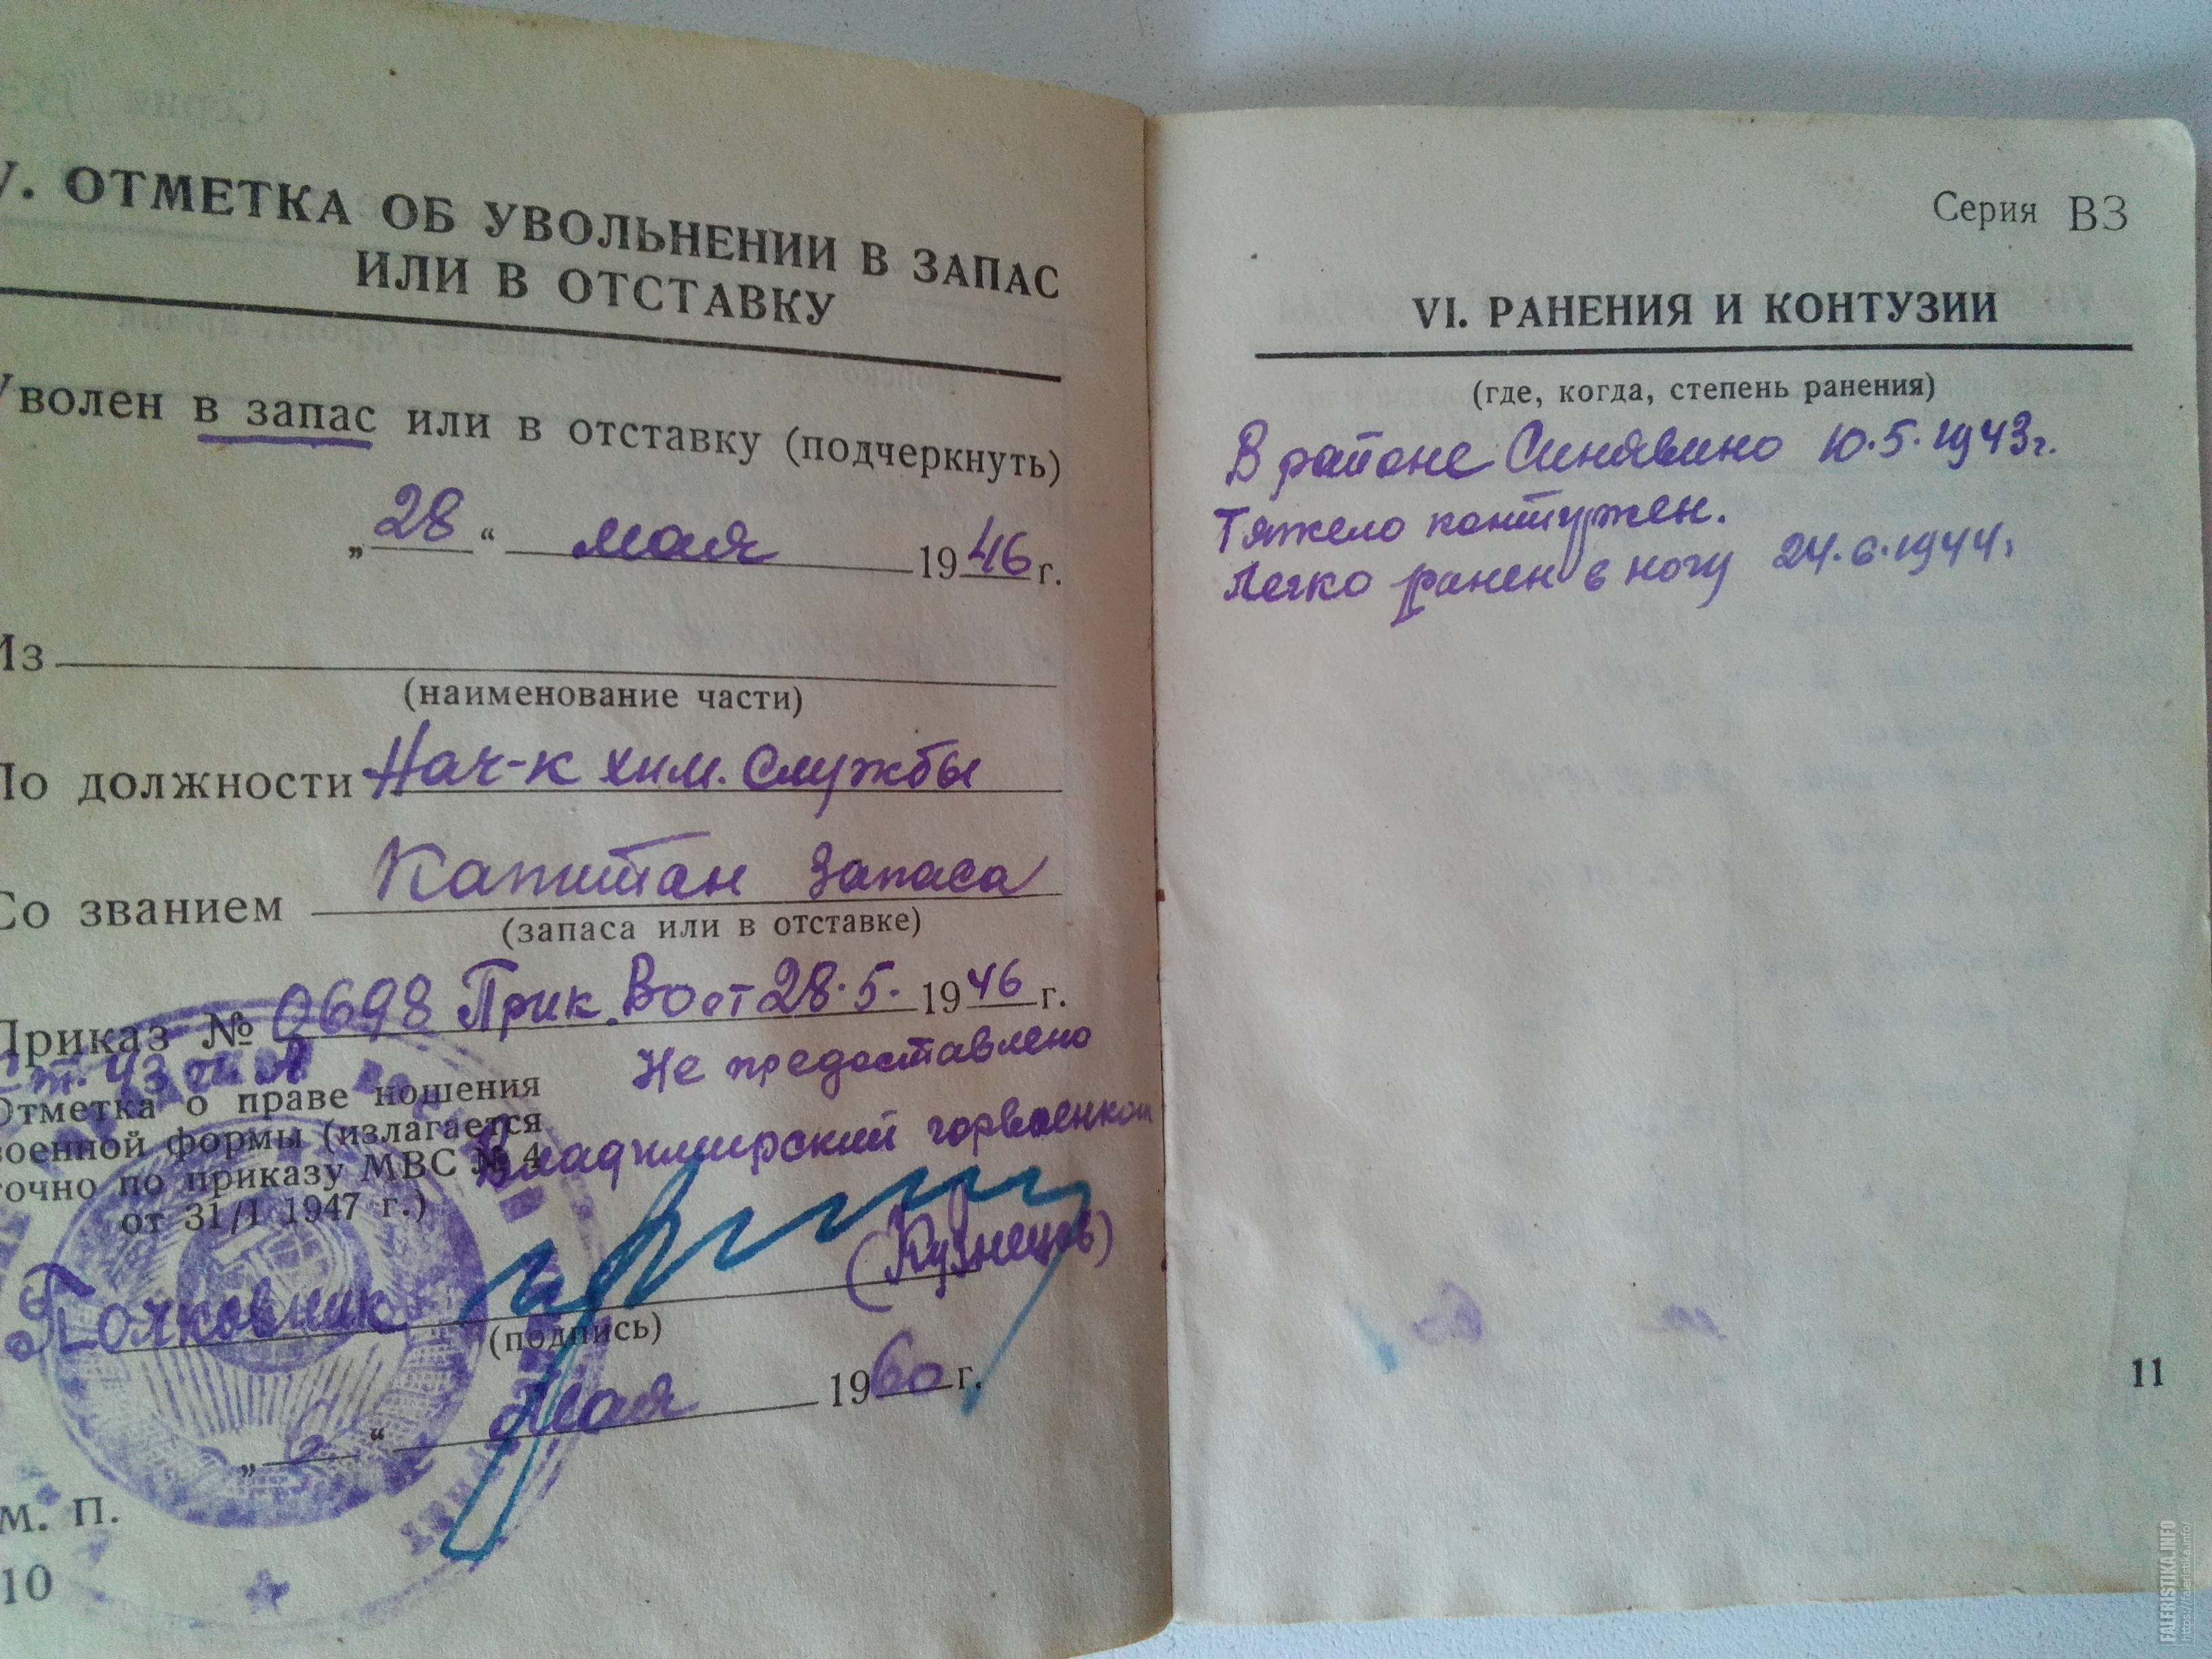 V. ОТМЕТКА ОБ УВОЛЬНЕНИИ В ЗАПАС
ИЛИ В ОТСТАВКУ
Уволен в запас или в отставку (подчеркнуть)
„28“ мая 1946 г.
Из
(наименование части)
По должности Нач-к хим. Службы
Со званием Капитан запаса
(запаса или в отставке)
Приказ № 0698 Прик. ВО от 28.5. 1946 г.
Ст. 43
Не предоставлено
Отметка о праве ношения
военной формы (излагается
точно по приказу МВС № 4
от 31/I 1947 г.)
Владимирский горвоенком
Полковник (Кузнецов)
(подпись)
„2“ мая 1960 г.
М. П.
10
Серия ВЗ
VI. РАНЕНИЯ И КОНТУЗИИ
(где, когда, степень ранения)
В районе Синявино 10.5.1943г.
Тяжело контужен.
Легко ранен в ногу 24.6.1944г
11
FALERISTIKA.INFO
https://faleristika.info/